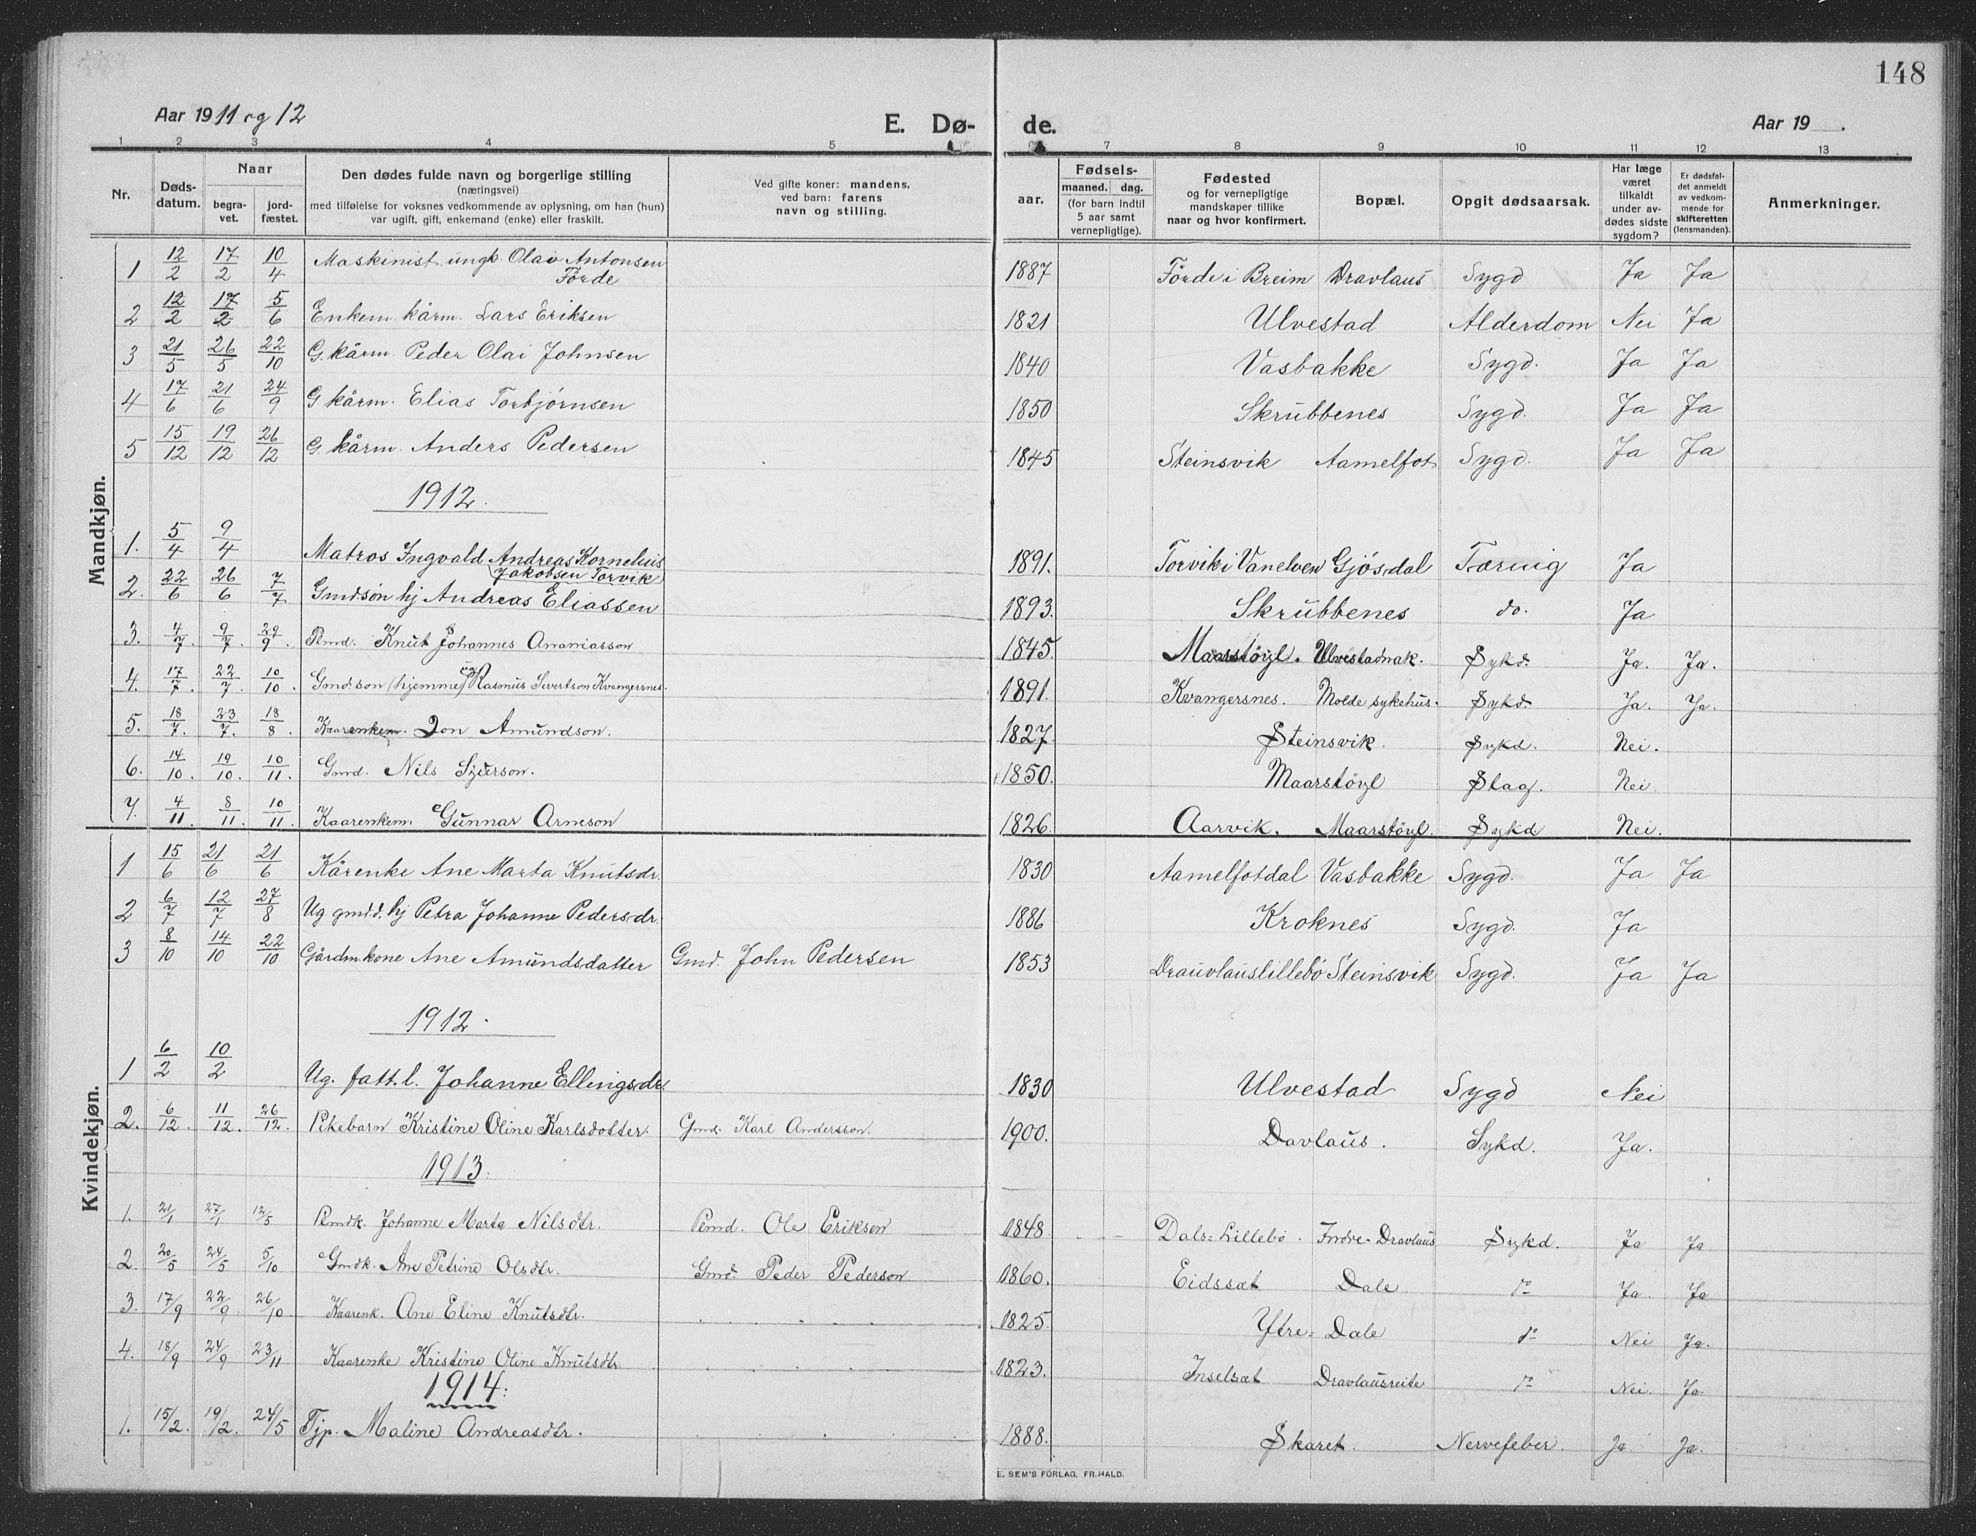 148
Aar 1911 og 12 E. Dø- de. Aar 19 .
1 2 3 4 5 7 8 9 10 11 12 13
Nr. Døds-datum. Naar begra-vet. jord-fæstet. Den dødes fulde navn og borgerlige stilling (næringsvei) med tilføielse for voksnes vedkommende av oplysning, om han (hun) var ugift, gift, enkemand (enke) eller fraskilt. Ved gifte koner: mandens, ved barn: farens navn og stilling. aar. Fødsels- maaned. dag. (for barn indtil 5 aar samt vernepligtige). Fødested og for vernepligtige mandskaper tillike naar og hvor konfirmert. Bopæl. Opgit dødsaarsak. Har læge været tilkaldt under av-dødes sidste sygdom? Er dødsfal-det anmeldt av vedkom-mende for skifteretten (lensmanden). Anmerkninger.
Mandkjøn.
1 12/2 17/2 10/4 Maskinist ungk Olai Antonsen Förde 1887 Förde i Breim Dravlaus Sygd Ja Ja
2 12/2 17/2 5/6 Enkem kårm. Lars Eriksen 1821 Ulvestad Alderdom Nei Ja
3 21/5 26/5 22/10 G. kårm. Peder Olai Johnsen 1840 Vasbakke Sygd. Ja Ja
4 17/6 21/6 24/9 G. kårm. Elias Torbjørnsen 1850 Skrubbenes Sygd. Ja Ja
5 15/12 19/12 26/12 G. kårm. Anders Pedersen 1845 Steinsvik Aamelfot Sygd. Ja Ja
1912.
1. 5/4 9/4 Matros Ingvald Andreas Kornelius Jakobsen Torvik 1891. Torvik i Vanelven Gjøsdal Tæring Ja
2. 22/6 26/6 7/7 Gmdsøn hj Andreas Eliassen 1893. Skrubbenes do. Ja
3. 4/7. 9/7. 29/9. Pmd. Knut Johannes Ananiasson 1845. Maarstöyl. Ulvestadnak. Sykd. Ja. Ja.
4. 17/7. 22/7. 10/10. Gmd.son (hjemme) ug Rasmus Sivertson Kvangersnes. 1891. Kvangersnes. Molde sykehus. Sykd. Ja. Ja.
5. 18/7. 23/7. 18/8. Kaarenkem. Jon Amundson. 1827. Steinsvik. Sykd. Nei.
6. 14/10. 19/10. 10/11. Gmd. Nils Sjurson. 1850. Maarstöyl Slag. Nei.
7. 4/11. 8/11. 10/11. Kaarenkem. Gunnar Arneson 1826. Aarvik. Maarstöyl. Sykd. Nei.
Kvindekjøn.
1 15/6 21/6 21/6 Kårenke Ane Marta Knutsdr. 1830 Aamelfotdal Vasbakke Sygd. Ja Ja
2 6/7 12/7 27/8 Ug gmd.d. hj Petra Johanne Pedersdr. 1886 Kroknes Sygd. Ja
3 8/10 14/10 22/10 Gårdm kone Ane Amundsdatter Gmd. John Pedersen 1853 Drauvlauslillebø Steinsvik Sygd. Ja Ja
1912.
1 6/2 10/2 Ug. fatt.l. Johanne Ellingsdr 1830 Ulvestad Sygd Nei
2. 6/12. 11/12. 26/12. Pikebarn Kristine Oline Karlsdotter. Gmd. Karl Andersson. 1900. Davlaus. Sykd. Ja.
1913.
1. 21/1 27/1 12/5 Pmdk. Johanne Marta Nilsdtr. Pmd. Ole Erikson 1848. Dals-Lillebø. Indre-Dravlaus Sykd. Ja Ja
2. 20/5 24/5 5/10 Gmdk. Ane Petrine Olsdtr. Gmd. Peder Pederson 1860. Eidssæt Dale do Ja. Ja
3. 17/9 22/9. 26/10 Kaarenk. Ane Eline Knutsdtr. 1825. Ytre-Dale do Nei Ja.
4. 18/9 24/9 23/11 Kaarenke Kristine Oline Knutsdtr. 1823. Inselsæt Dravlausreite do Nei. Ja.
1914.
1. 15/2. 19/2. 24/5 Tjp. Maline Andreasdtr. 1888. Skaret. Nervefeber. Ja Ja.
E. SEM'S FORLAG, FR.HALD.